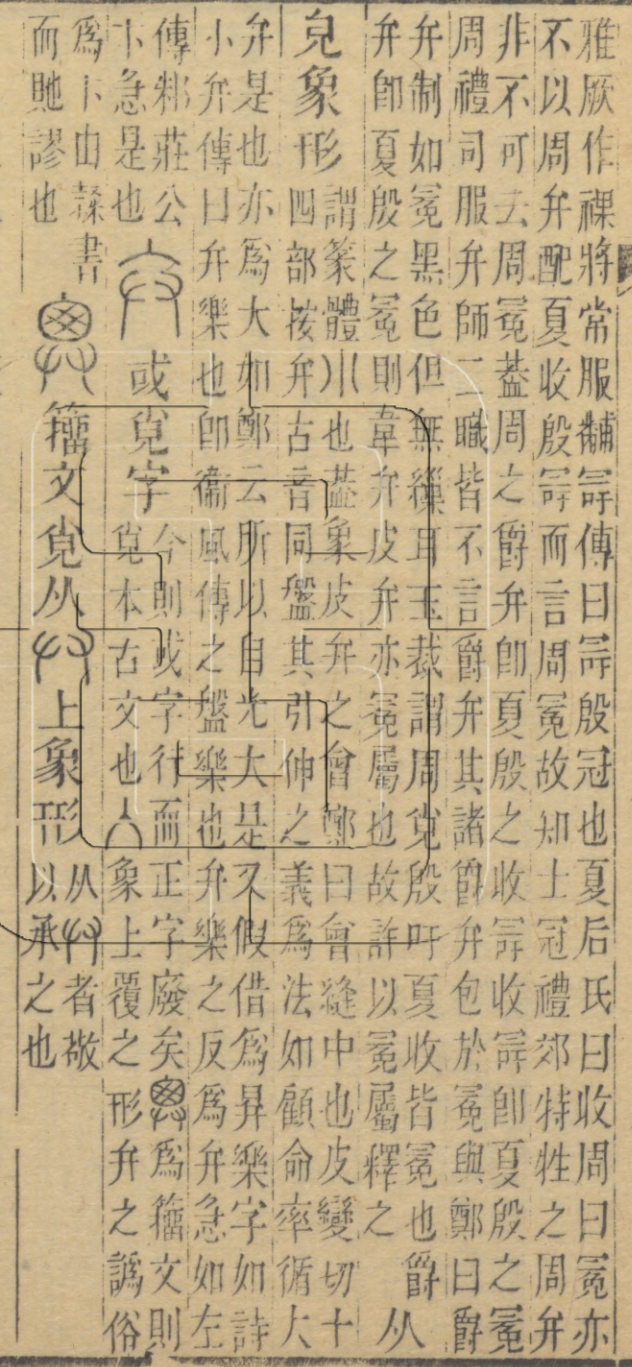 雅厥作祼將常服黼冔傳曰冔殷冠也夏后氏曰收周曰冕亦
不以周弁配夏收殷冔而言周冕故知士冠禮郊特牲之周弁
非不可去周冕葢周之爵弁卽夏殷之收冔收冔卽夏殷之冕
周禮司服弁師二職皆不言爵弁其諸爵弁包於冕與鄭曰爵
弁制如冕黑色但無繅耳玉裁謂周覍殷吁夏收皆冕也爵
弁卽夏殷之冕則韋弁皮弁亦冕屬也故許以冕屬釋之
从
皃象形
謂篆體也葢象皮弁之會鄭曰會縫中也皮變切十
四部按弁古音同盤其引伸之義爲法如顧命率循大
弁是也亦爲大如鄭云所以自光大是又假借爲昪樂字如詩
小弁傳曰弁樂也卽衞風傳之盤樂也弁樂之反爲弁急如左
傳邾莊公
卞急是也
或覍字
今則或字行而正字廢矣爲籒文則
覍本古文也人象上覆之形弁之譌俗
爲卞由隷書
而貤謬也
籒文覍从廾上象形
从廾者敬
以承之也